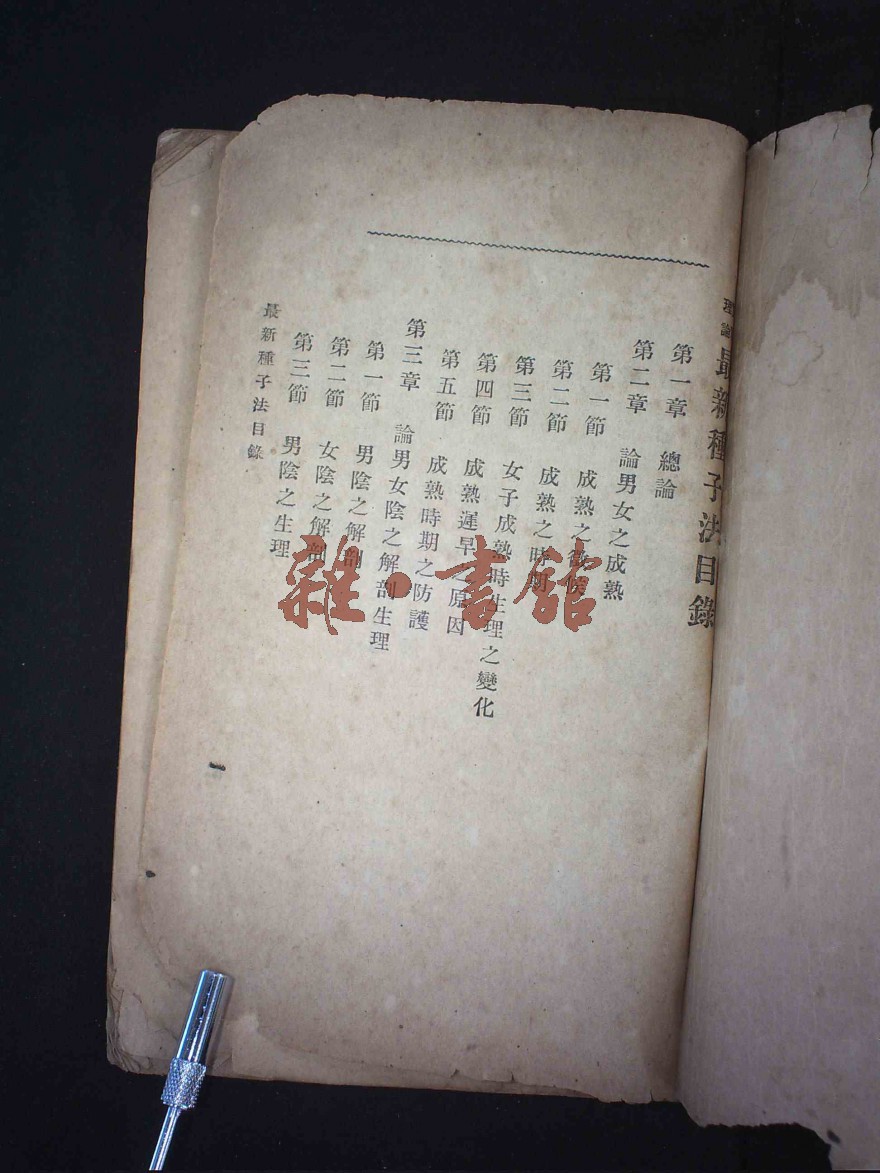 理論
最新種子法目錄
第一章　總論
第二章　論男女之成熟
第一節　成熟之徵候
第二節　成熟之時期
第三節　女子成熟時生理之變化
第四節　成熟遲早之原因
第五節　成熟時期之防護
第三章　論男女陰之解剖生理
第一節　男陰之解剖
第二節　女陰之解剖
第三節　男陰之生理
最新種子法目錄
一
雜·書館